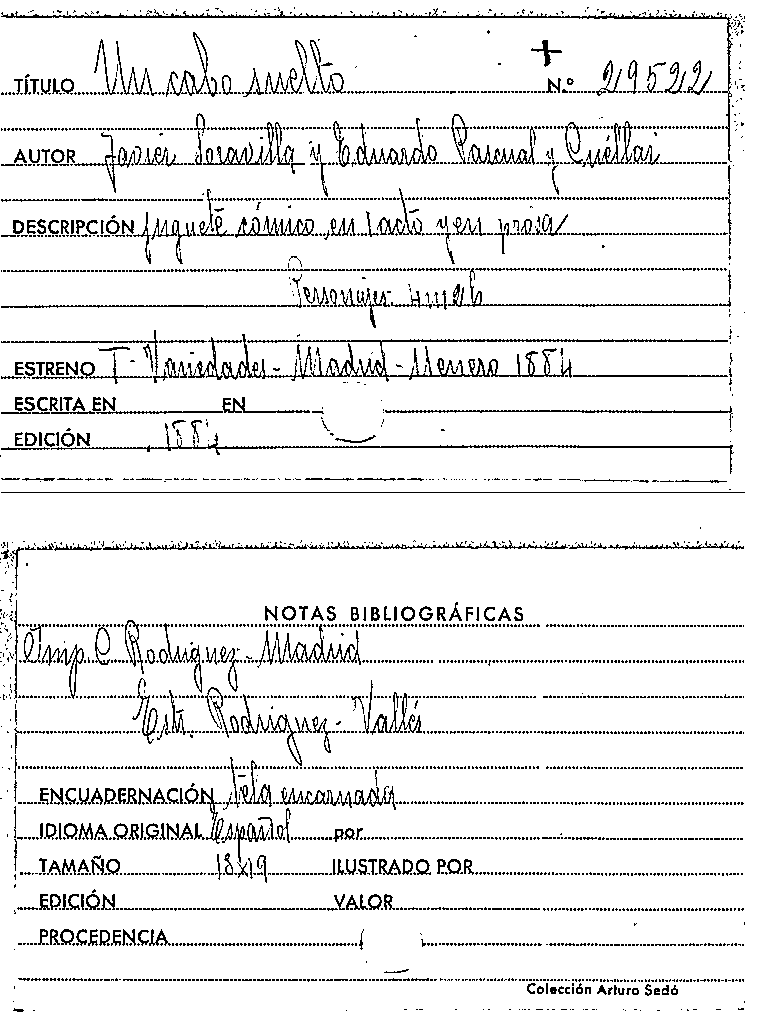 +
TÍTULO Un cabo suelto N.º 29522
AUTOR Javier Soravilla y Eduardo Pascual y Cuéllar
DESCRIPCIÓN juguete cómico en 1 acto y en prosa
Personajes 4m 2h
ESTRENO T. Variedades - Madrid - 11 enero 1884
ESCRITA EN EN
EDICIÓN 1884
NOTAS BIBLIOGRÁFICAS
Imp. C Rodriguez - Madrid
Estr. Rodriguez - Vallés
ENCUADERNACIÓN tela encarnada
IDIOMA ORIGINAL Español por
TAMAÑO 18x19 ILUSTRADO POR
EDICIÓN VALOR
PROCEDENCIA
Colección Arturo Sedó